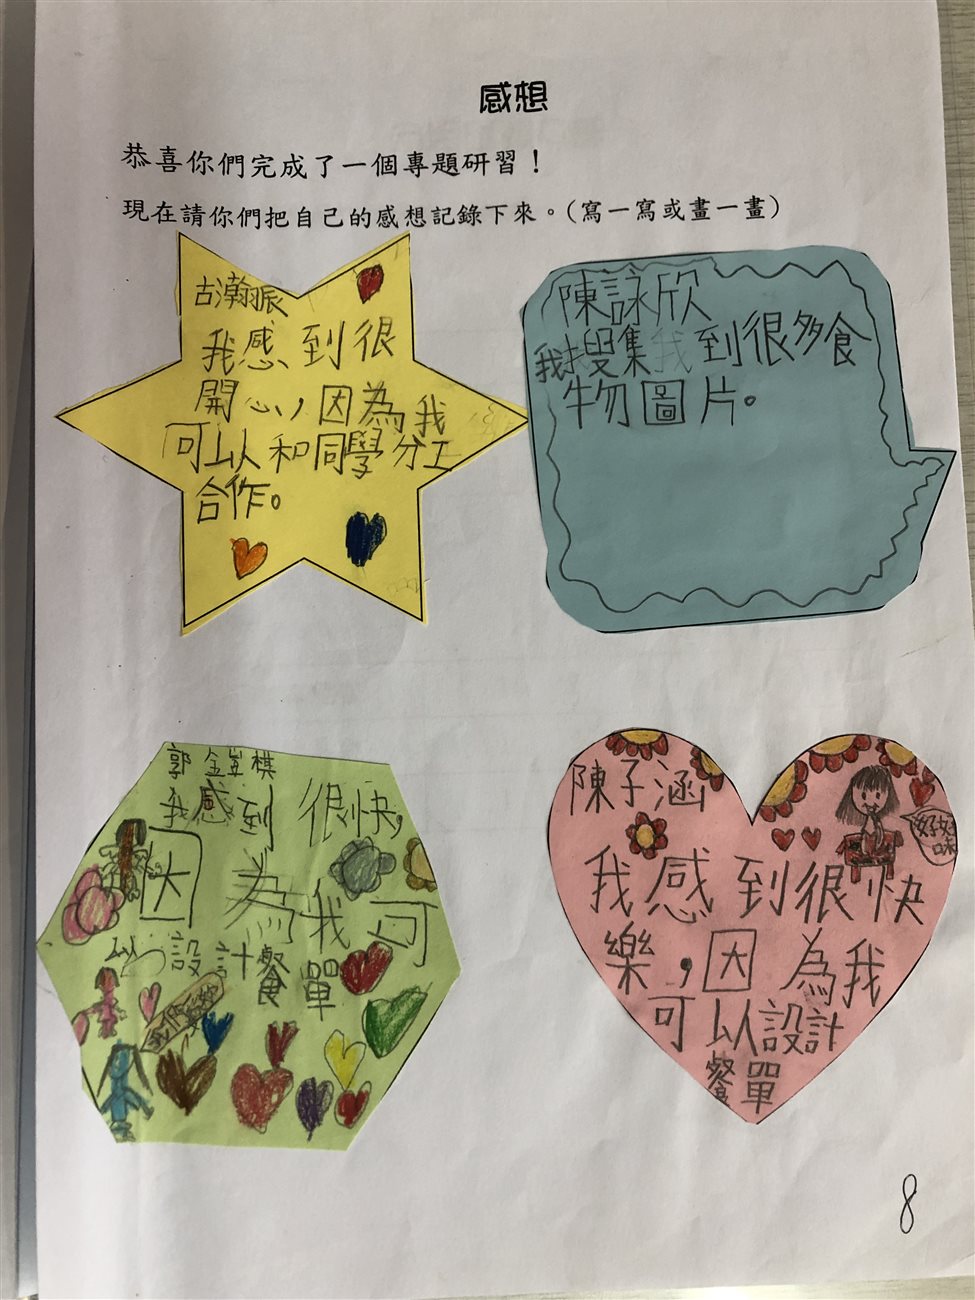 感想
恭喜你們完成了一個專題研習！
現在請你們把自己的感想記錄下來。（寫一寫或畫一畫）
古瀚賑
我感到很
開心，因為我
可以和同學分工
合作。
陳詠欣
我搜集到很多食
物圖片。
郭 棋
我感到很快，
因為我可
以設計餐單
陳子涵
好好
味
我感到很快
樂，因為我
可以設計
餐單
8